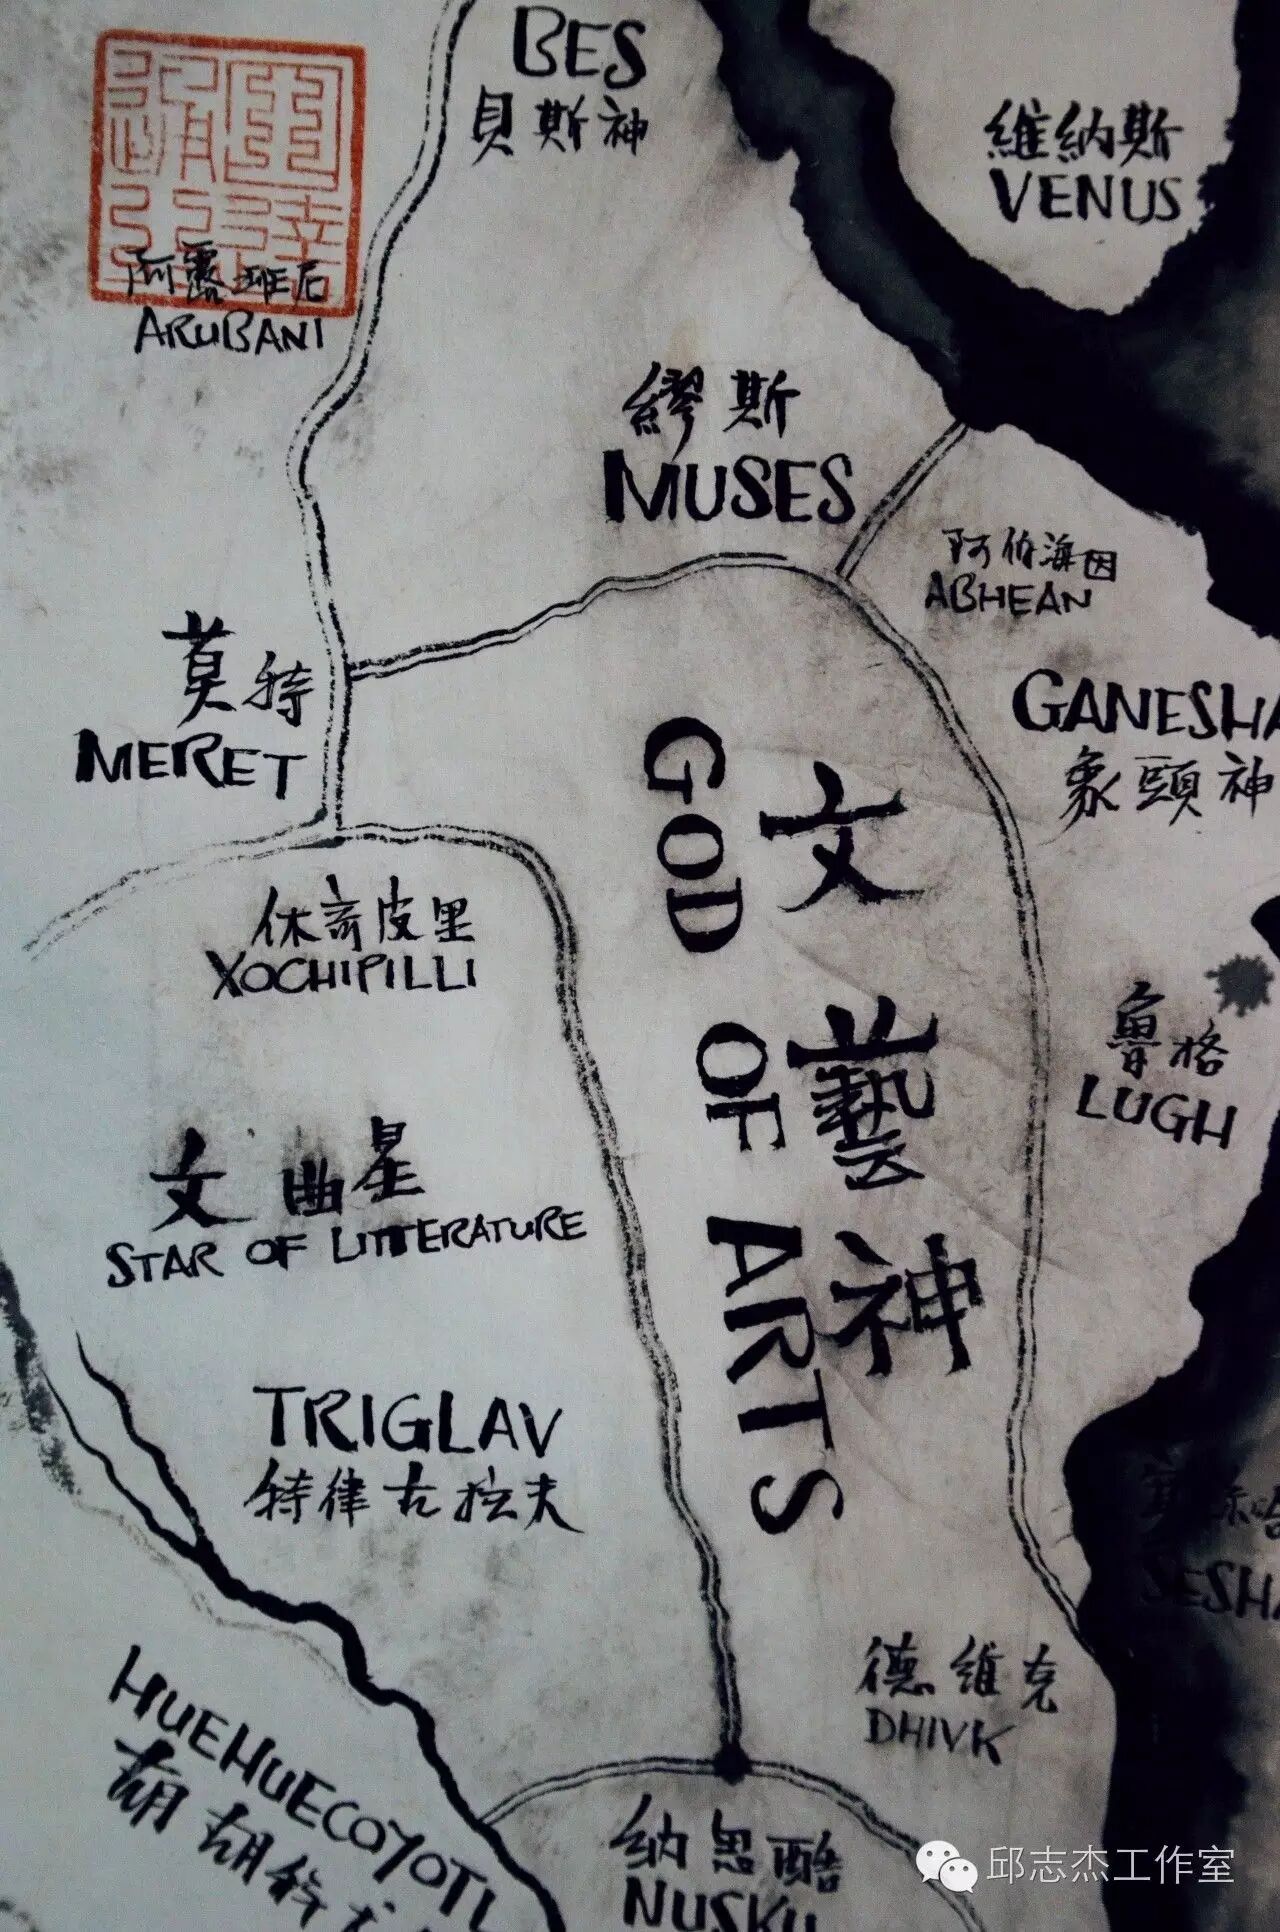 BES
貝斯神
維納斯
VENUS
阿露班尼
ARUBANI
繆斯
MUSES
阿伯海因
ABHEAN
莫特
MERET
GANESHA
象頭神
文藝神
GOD OF ARTS
休奇皮里
XOCHIPILLI
魯格
LUGH
文曲星
STAR OF LITTERATURE
TRIGLAV
特律古拉夫
SESHA
德維克
DHIVK
HUEHUECOYOTL
胡胡
纳思酷
NUSKU
邱志杰工作室